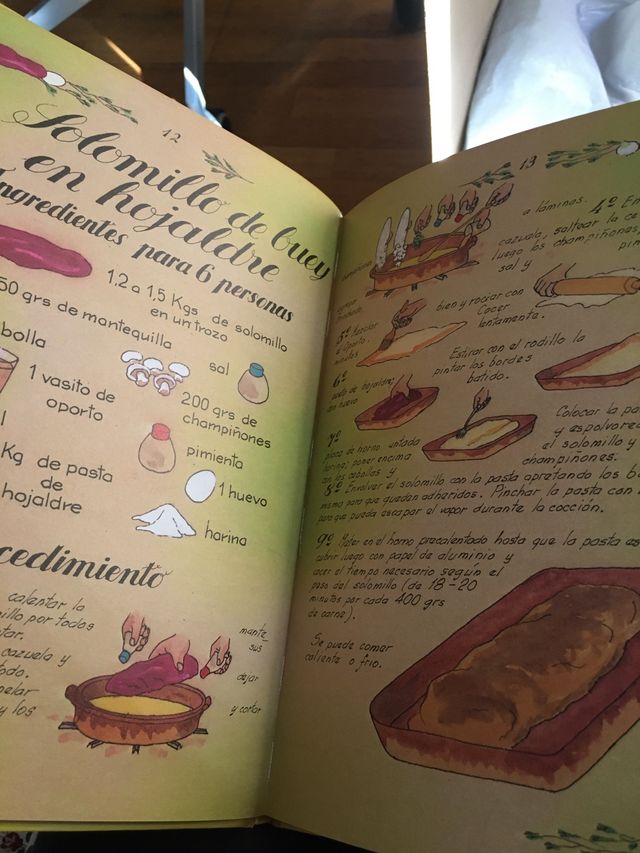 12
Solomillo de buey
en hojaldre
Ingredientes para 6 personas
1,2 a 1,5 Kgs de solomillo
en un trozo
50 grs de mantequilla
bolla
sal
1 vasito de
oporto
200 grs de
champiñones
pimienta
Kg de pasta
de
hojaldre
1 huevo
harina
cedimiento
calentar la
illo por todos
tar.
cazuela y
todo.
pelar
y los
mante
sus
dejar
y cortar
13
a láminas. 4º En
cazuela, saltear la ce
luego los champiñones,
sal y pim
5º Mezclar bien y rociar con
Oporto. Cocer
minutos lentamente.
6º Estirar con el rodillo la
pasta de hojaldre, pintar los bordes
con huevo batido.
7º Colocar la pa
placa de horno untada y espolvorea
harina; poner encima el solomillo y
con las cebollas y champiñones.
8º Envolver el solomillo con la pasta apretando los bo
mismo para que queden adheridos. Pinchar la pasta con
para que pueda escapar el vapor durante la cocción.
9º Meter en el horno precalentado hasta que la pasta es
cubrir luego con papel de aluminio y
cocer el tiempo necesario según el
peso del solomillo (de 18-20
minutos por cada 400 grs
de carne).
Se puede comer
caliente o frío.